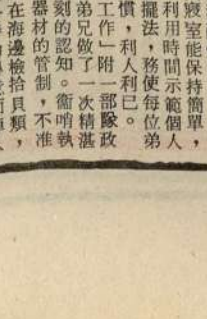 寢室能保持簡單，
利用時間示範個人
擺法，務使每位弟
慣，利人利已。
工作」附一部隊政
弟兄做了一次精湛
刻的認知。衞哨執
器材的管制，不准
在海邊檢拾貝類，